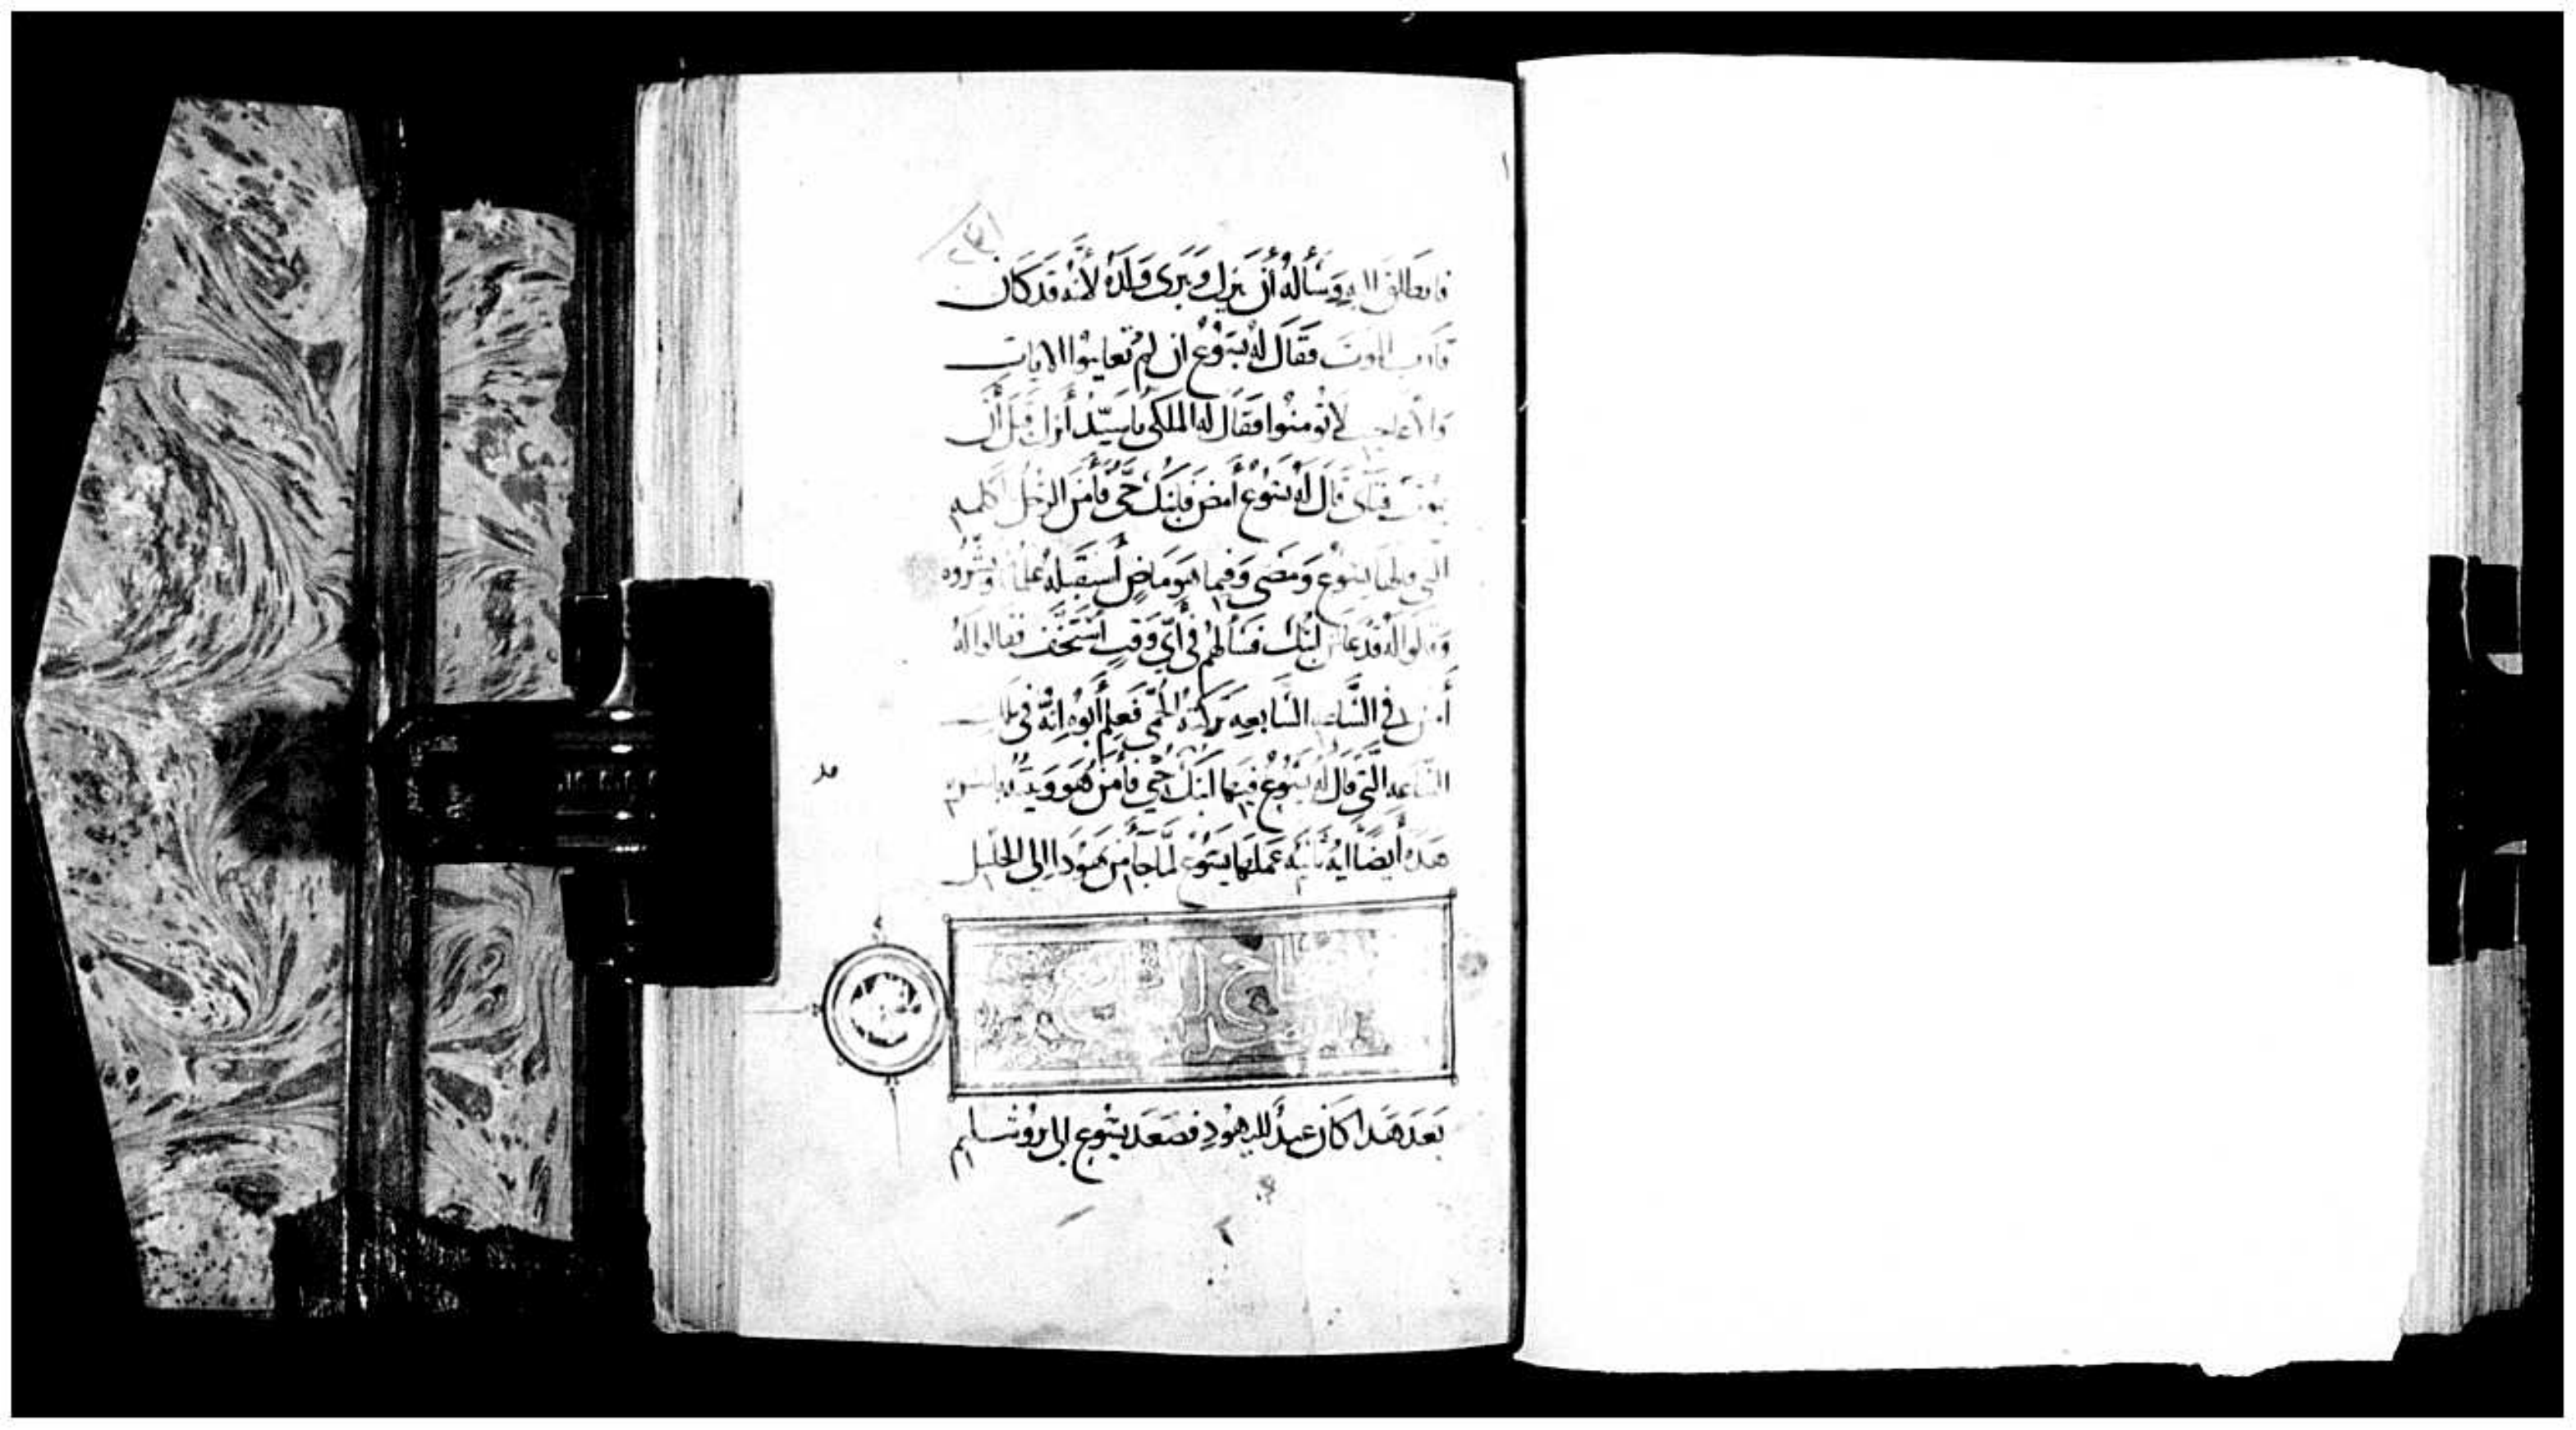 فانطلق اليه وَسَألهُ أن يَنزل وَيَبرى وَلَدَهُ لأنّهُ قد كَان
قَارب الموت فقَال لهُ يسُوع ان لم تُعاينوا الايات
وَالأعاجيب لا تُومنُوا فقَال له الملكى يا سَيّد أنزل قبل أن
يموت فتَاى قَال لهُ يسُوع أمض فابنك حَى فأمَن الرجُل بالكلمه
التي قالها يسُوع وَمضَى وَفيما هو مَاضٍ أستقبله غلمانه وبشروه
وَقالوا له قد عَاش ابنك فسَألهُم في أيّ وقتٍ أستخَف فقالوا له
أمس في السَّاعه السَابعه تركتهُ الحُمّى فَعلم أبُوه انّهُ في تلك
السَاعه التَّي قال لهُ يسُوع فيهَا ابنك حَيّ فأمن هُو وبيته بايسوع
هَذه أيضًا ايه ثانيَه عَملهَا يسُوع لَمّا جَأ من يَهُودا إلى الجَليل
بَعَد هَذا كَان عيدٌ لليهُودِ فصَعَد يسُوع الى يروُشَليم